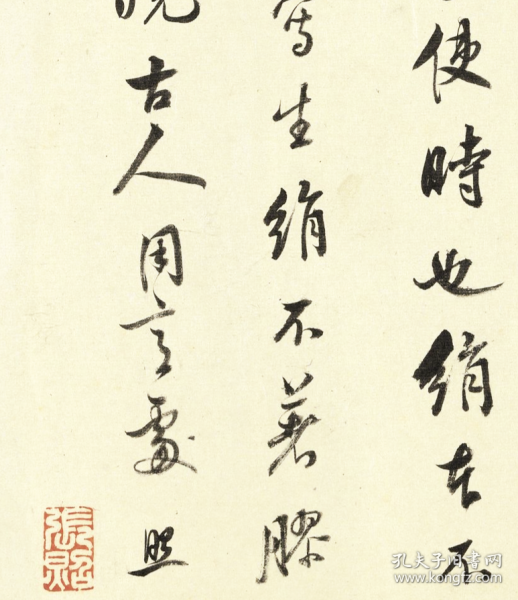 使時也絹本不
寫生絹不著膠
古人用意處 照
張照
孔夫子旧书网
www.kongfz.com